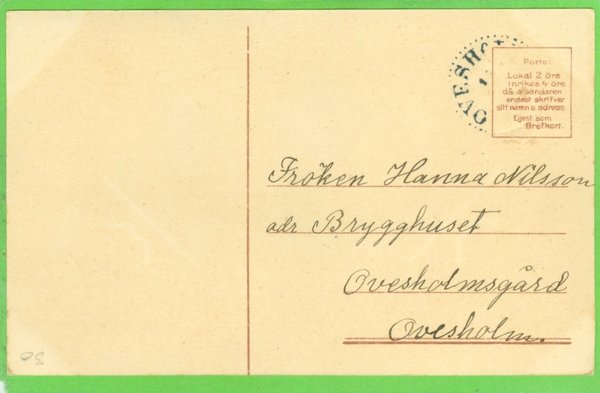 OVESHO
Porto:
Lokal 2 öre
inrikes 4 öre
då afsändaren
endast skrifver
sitt namn o. adress.
Eljest som
Brefkort.
Fröken Hanna Nilsson
adr Brygghuset
Ovesholmsgård
Ovesholm.
30